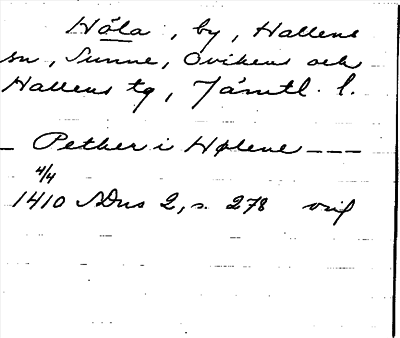 Höla, by, Hallens
sn, Sunne, Ovikens och
Hallens tg, Jämtl. l.
_ Pether i Hølene ---
4/4
1410 NDns 2, s. 278